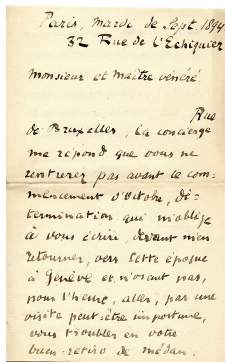 Paris, mardi de Sept. 1894
32 Rue de l'Echiquier
Monsieur et maître vénéré.
Rue
de Bruxelles, la concierge
me répond que vous ne
rentrerez pas avant le com-
mencement d'Octobre, dé-
termination qui m'oblige
à vous écrire, devant m'en
retourner, vers cette époque
à Genève et n'osant pas,
pour l'heure, aller, par une
visite peut-être importune,
vous troubler en votre
buen-retiro de médan.